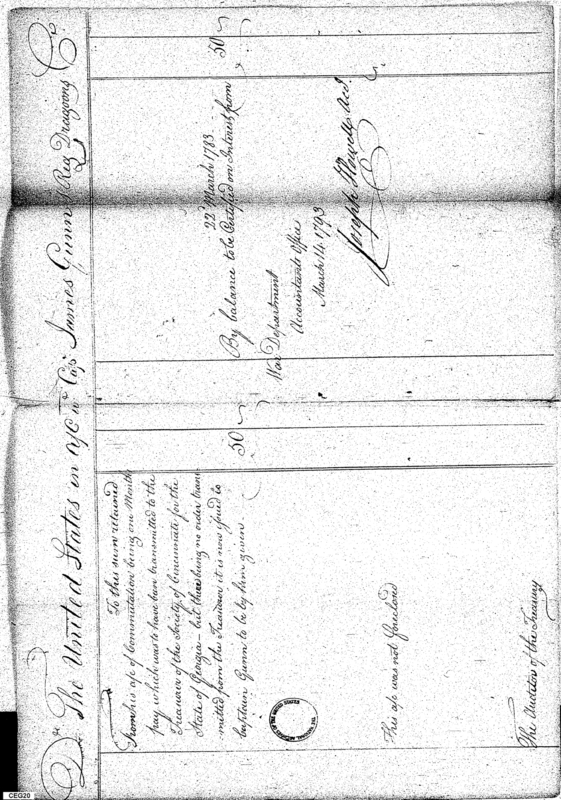 Dr The United States in a/c wth Capt James Gunn Reg Dragoons Cr
To this sum retained
From his a/c of Commutation being one Months
pay which was to have been transmitted to the
Treasurer of the Society of Cincinnati for the
State of Georgia – but there being no order trans
mitted from the Treasurer it is now issued to
Captain Gunn to be by him given
50
This a/c was not foreclosed
The Auditor of the Treasury
22d March 1783
By balance to be Certified on Interest from
50
War Department
Accountants Office
March 14 1793
Joseph Howell Acct
THE NATIONAL ARCHIVES
CEG20